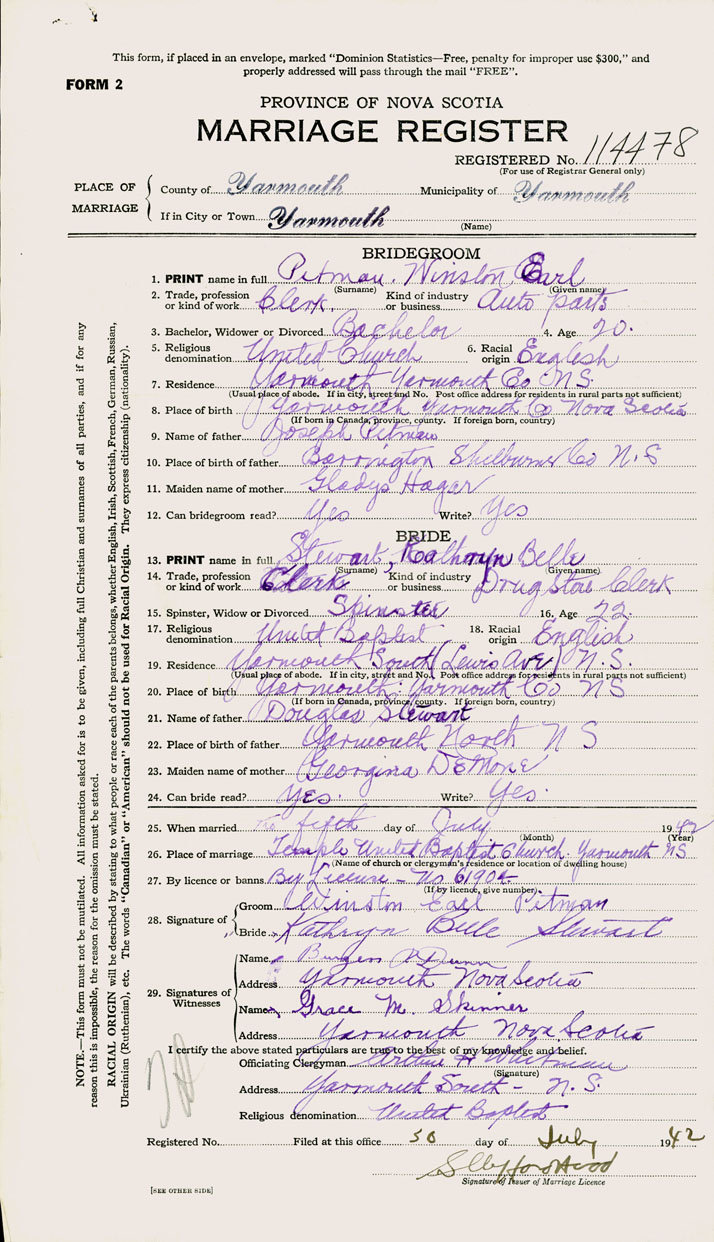 This form, if placed in an envelope, marked "Dominion Statistics—Free, penalty for improper use $300," and
properly addressed will pass through the mail "FREE".
FORM 2
PROVINCE OF NOVA SCOTIA
MARRIAGE REGISTER
REGISTERED No. 114478
(For use of Registrar General only)
PLACE OF MARRIAGE
County of Yarmouth Municipality of Yarmouth
If in City or Town Yarmouth
(Name)
BRIDEGROOM
1. PRINT name in full Pitman, Winston Earl
(Surname) (Given name)
2. Trade, profession or kind of work Clerk Kind of industry or business Auto parts
3. Bachelor, Widower or Divorced Bachelor 4. Age 20.
5. Religious denomination United Church 6. Racial origin English
7. Residence Yarmouth Yarmouth Co N.S.
(Usual place of abode. If in city, street and No. Post office address for residents in rural parts not sufficient)
8. Place of birth Yarmouth Yarmouth Co Nova Scotia
(If born in Canada, province, county. If foreign born, country)
9. Name of father Joseph Pitman
10. Place of birth of father Barrington Shelburne Co N.S
11. Maiden name of mother Gladys Hagar
12. Can bridegroom read? Yes Write? Yes
BRIDE
13. PRINT name in full Stewart, Kathryn Belle
(Surname) (Given name)
14. Trade, profession or kind of work Clerk Kind of industry or business Drug Store Clerk
15. Spinster, Widow or Divorced Spinster 16. Age 22.
17. Religious denomination United Baptist 18. Racial origin English
19. Residence Yarmouth South Lewis Ave, N.S.
(Usual place of abode. If in city, street and No. Post office address for residents in rural parts not sufficient)
20. Place of birth Yarmouth: Yarmouth Co NS
(If born in Canada, province, county. If foreign born, country)
21. Name of father Douglas Stewart
22. Place of birth of father Yarmouth North N S
23. Maiden name of mother Georgina DeMone
24. Can bride read? Yes. Write? Yes.
25. When married The fifth day of July 1942
(Month) (Year)
26. Place of marriage Temple United Baptist Church. Yarmouth NS
(Name of church or clergyman's residence or location of dwelling house)
27. By licence or banns By License - No 61904
(If by licence, give number)
28. Signature of
Groom Winston Earl Pitman
Bride Kathryn Belle Stewart
29. Signatures of Witnesses
Name Burgess Dunn
Address Yarmouth Nova Scotia
Name Grace M. Skinner
Address Yarmouth Nova Scotia
I certify the above stated particulars are true to the best of my knowledge and belief.
Officiating Clergyman Arthur H Whitman
(Signature)
Address Yarmouth South - N.S.
Religious denomination United Baptist
Registered No. Filed at this office 30 day of July 1942
Signature of Issuer of Marriage Licence
[SEE OTHER SIDE]
NOTE.—This form must not be mutilated. All information asked for is to be given, including full Christian and surnames of all parties, and if for any
reason this is impossible, the reason for the omission must be stated.
RACIAL ORIGIN will be described by stating to what people or race each of the parents belongs, whether English, Irish, Scottish, French, German, Russian,
Ukrainian (Ruthenian), etc. The words "Canadian" or "American" should not be used for Racial Origin. They express citizenship (nationality).